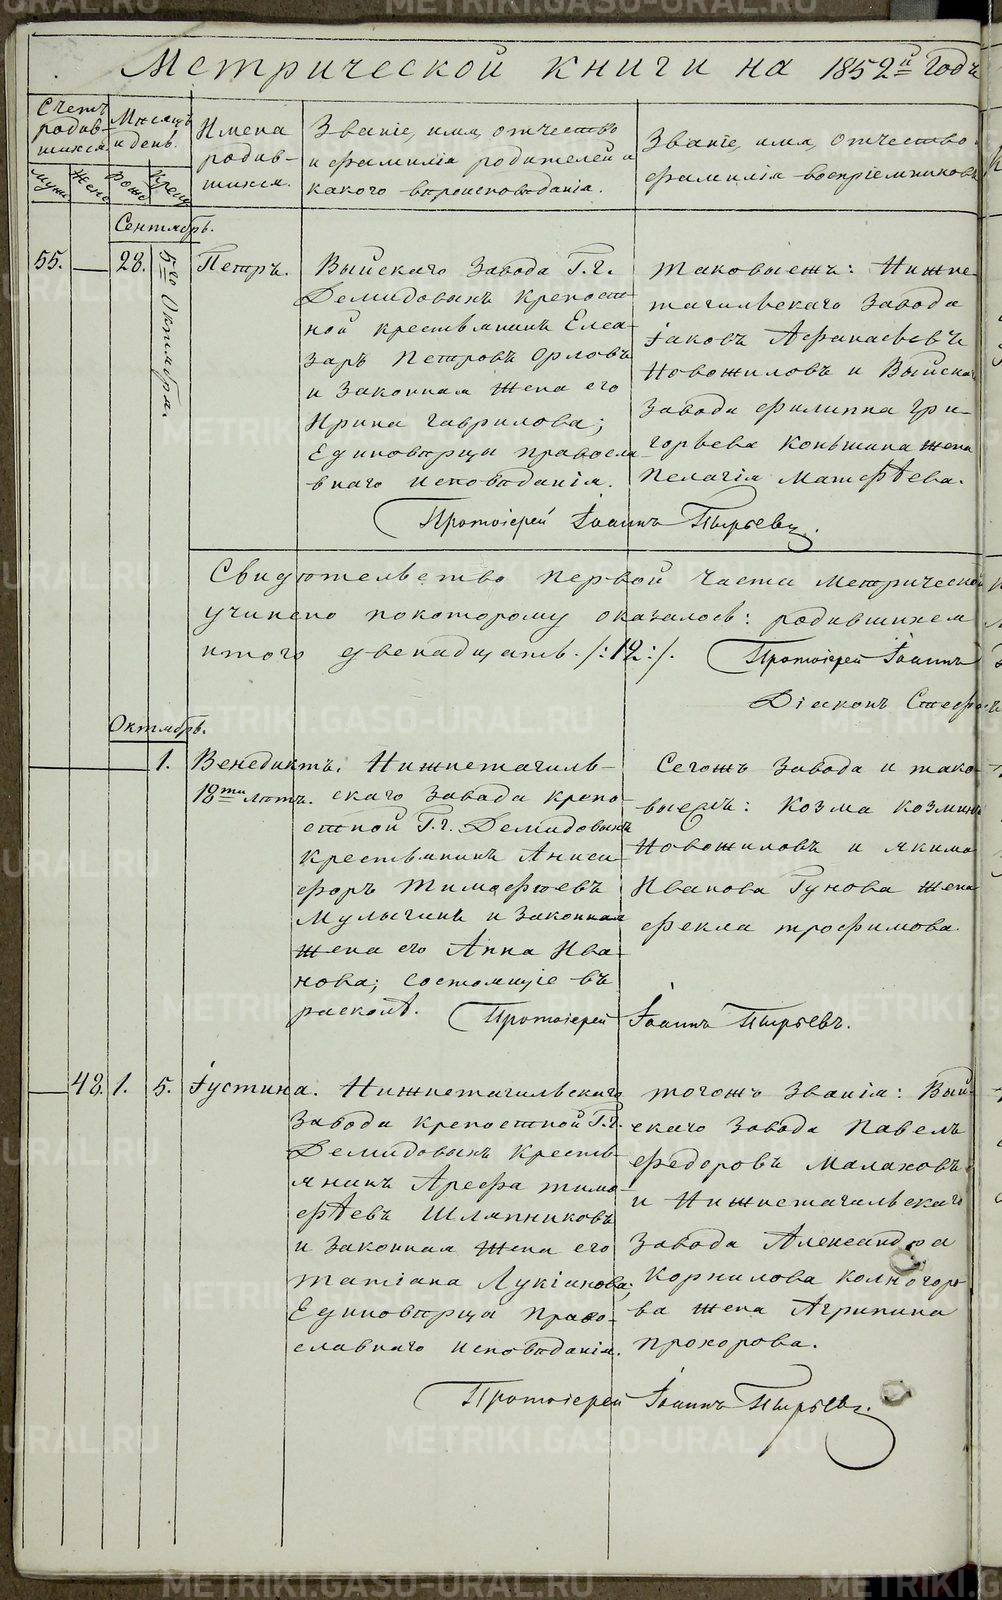 Метрической книги на 1852й годъ
Счетъ родив-шихся.
Мужс. Женс.
Месяцъ и день.
Рожд. Крещ.
Имена
родив-
шихся.
Званіе, имя, отчество
и фамилія родителей и
какого вѣроисповѣданія.
Званіе, имя, отчество
фамилія воспріемниковъ
Сентябрь.
55. 28. 5го Октября. Петръ.
Выйскаго Завода Г.г.
Демидовыхъ крепост-
ной крестьянинъ Елеа-
заръ Петровъ Орловъ
и Законная жена его
Ирина Гаврилова;
Единоверцы правосла-
внаго исповѣданія.
таковыежъ: Нижне-
тагильскаго Завода
Іаковъ Афанасьевъ
Новожиловъ и Выйска
Завода филиппа Гри-
горьева Коньшина жена
Пелагія Матфѣева.
Протоіерей Іоаннъ Пырьевъ.
Свидѣтельство первой части Метрической
учинено покоторому оказалось: родившихся
итого двенадцать. /:12:/. Протоіерей Іоаннъ
Діаконъ Стеф
Октябрь.
1. Венедиктъ.
18ти лѣтъ.
Нижнетагиль-
скаго Завода крепо-
стной Г.г. Демидовыхъ
крестьянинъ Аниси-
форъ Тимофеевъ
Мулыгинъ и Законная
жена его Анна Ива-
нова; состоящіе въ
расколѣ.
Сегожъ Завода и тако-
выежъ: Козма Козминъ
Новожиловъ и Якима
Иванова Гунова жена
фекла трофимова.
Протоіерей Іоаннъ Пырьевъ.
48. 1. 5. Іустина.
Нижнетагильскаго
Завода крепостной Г.г.
Демидовыхъ кресть-
янинъ Арефа тимо-
фѣевъ Шляпниковъ
и Законная жена его
татіана Лукіанова;
Единовѣрцы Право-
славнаго исповѣданія.
тогожъ званія: Вый-
скаго Завода Павелъ
федоровъ Малаховъ
и Нижнетагильскаго
Завода Александра
Корнилова Колногоро
ва жена Агрипина
Прохорова.
Протоіерей Іоаннъ Пырьевъ.
METRIKI.GASO-URAL.RU